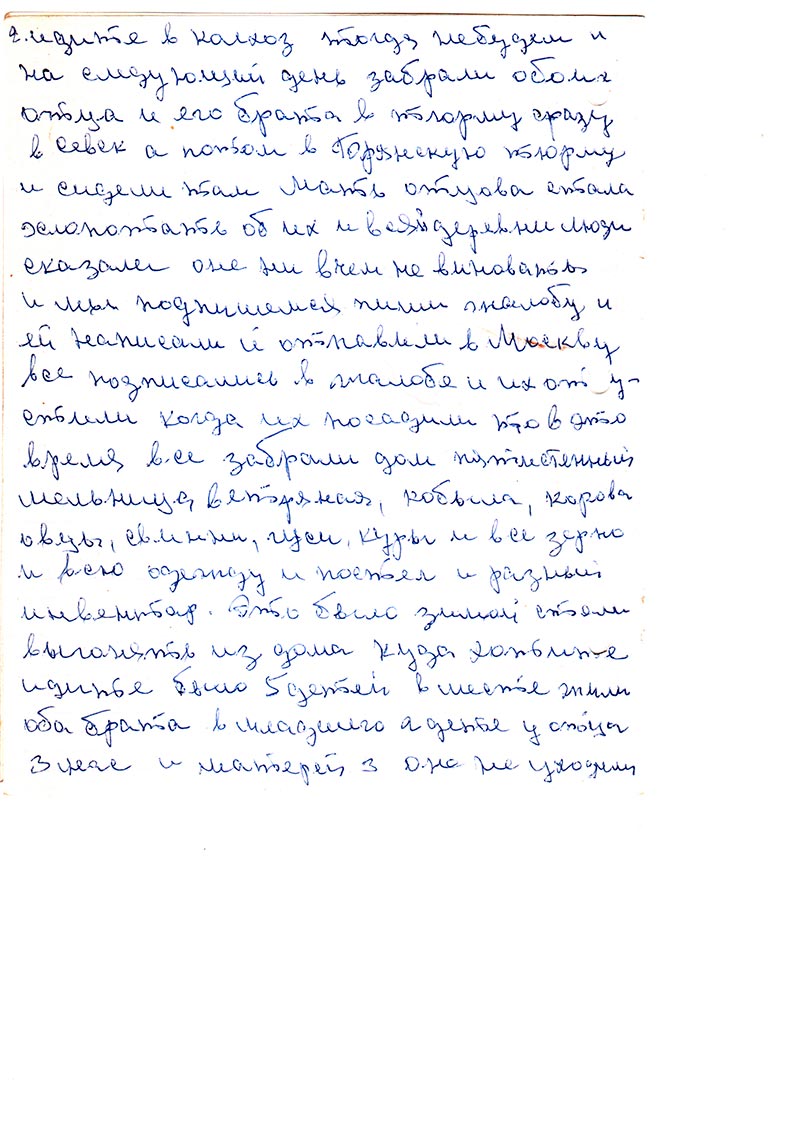 2. идите в колхоз тогда небудем и
на следующий день забрали обоих
отца и его брата в тюрму сразу
в Севск а потом в Брянскую тюрму
и сидели там Мать отцова стала
хлопотать об их и всяй деревни люди
сказали оне ни вчем не виноваты
и мы подпишемся пиши жалобу и
ей написали и отправили в Москву
все подписались в жалобе и их отпу-
стили когда их посадили то в это
время все забрали дом пятистенный
мельница ветряная, кобыла, корова
овцы, свинни, гуси, куры и все зерно
и всю одежду и постел и разный
инвентар. Это было зимой стали
выгонять из дома куда хотите
идите было 5 детей вместе жили
оба брата в младшего 2 дете у отца
3 нас и матерей 3 оне не уходили